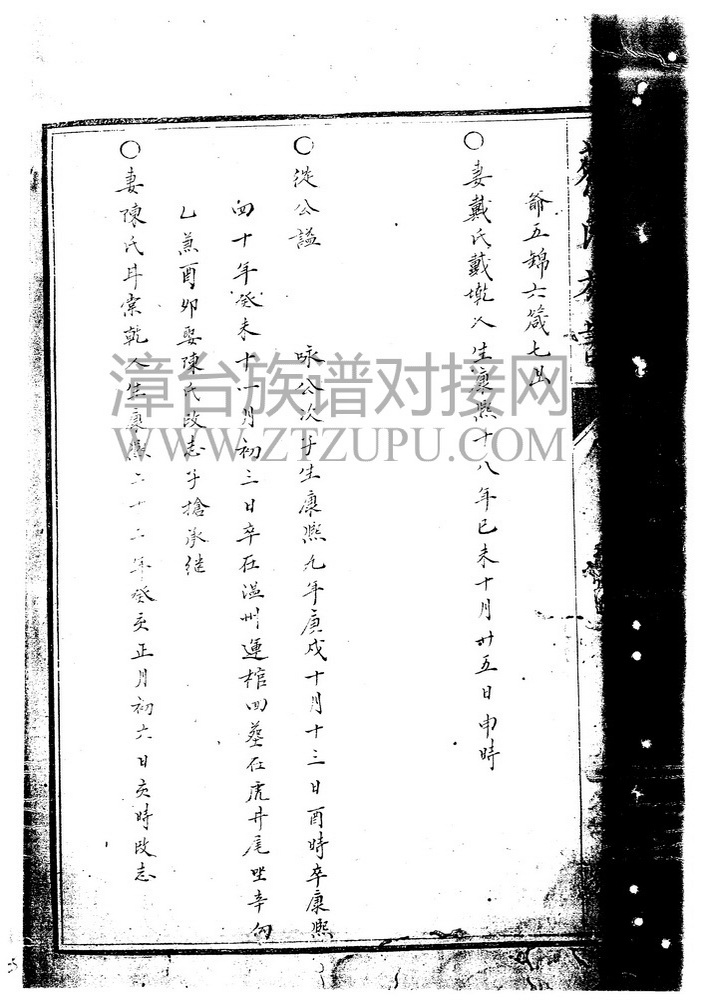 爺五錦六箴七出
○妻戴氏戴墘人生康熙十八年己未十月廿五日申時
○從公謚 咏公次子生康熙九年庚戌十月十三日酉時卒康熙
四十年癸未十一月初三日卒在温州運棺回葬在虎井尾坐辛向
乙兼酉卯娶陳氏改志子搶承继
○妻陳氏井 乾人生康熙二十二年癸亥正月初六日亥時改志
漳台族谱对接网
WWW.ZTZUPU.COM